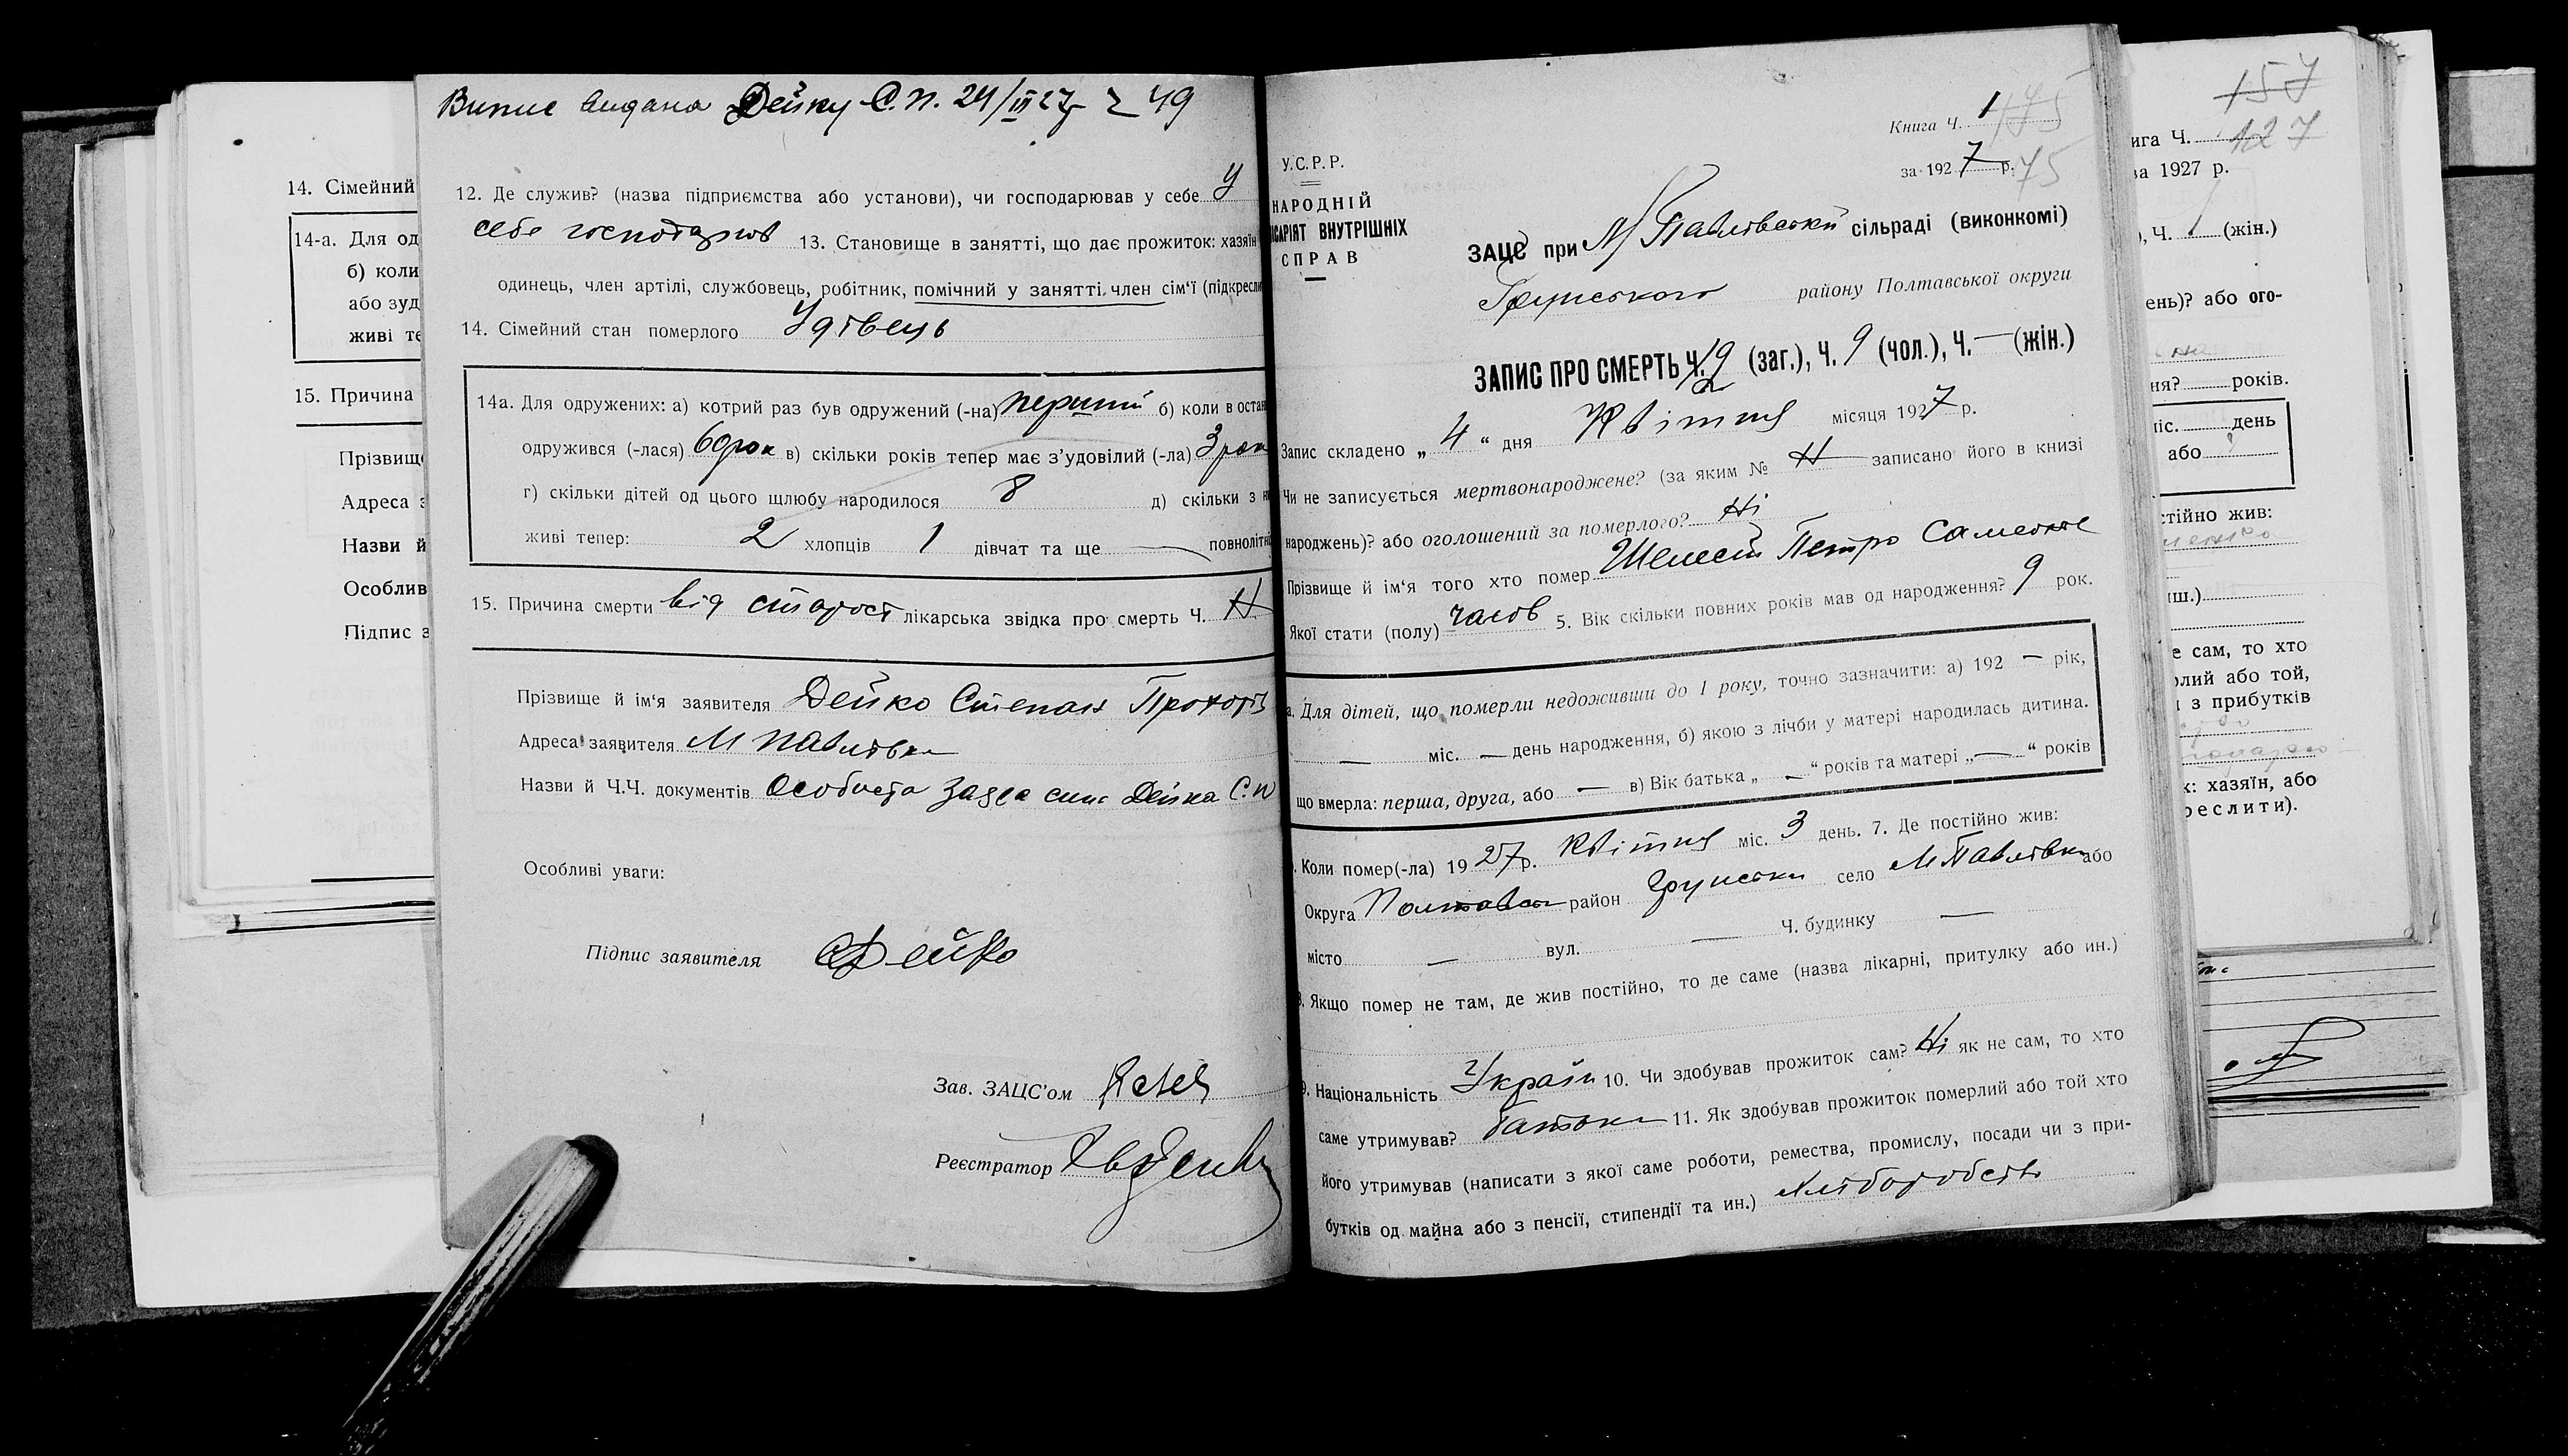 14. Сімейний
14-а. Для од
б) коли
або зуд
живі те
15. Причина
Прізвищ
Адреса з
Назви й
Особлив
Підпис з
Випис видана Дейку С. П. 24/III 27р 49
12. Де служив? (назва підприємства або установи), чи господарював у себе у
себе господарюв 13. Становище в занятті, що дає прожиток: хазяїн
одинець, член артілі, службовець, робітник, помічний у занятті член сім'ї (підкресли
14. Сімейний стан померлого Удівець
14а. Для одружених: а) котрий раз був одружений (-на) перший б) коли в остан
одружився (-лася) в) скільки років тепер має з'удовілий (-ла)
г) скільки дітей од цього шлюбу народилося 8 д) скільки з н
живі тепер: 2 хлопців 1 дівчат та ще — повнолітні
15. Причина смерти від старост лікарська звідка про смерть Ч. Н
Прізвище й ім'я заявителя Дейко Степан Прохорів
Адреса заявителя М Павлівка
Назви й Ч.Ч. документів Особиста заява сина Дейка С. П
Особливі уваги:
Підпис заявителя СДейко
Зав. ЗАЦС'ом
Реєстратор
У.С.Р.Р.
НАРОДНІЙ
ІСАРІЯТ ВНУТРІШНІХ
СПРАВ
Книга Ч. 1 175
за 1927 р. 75
ЗАЦС при М Павлівській сільраді (виконкомі)
Грунського району Полтавської округи
ЗАПИС ПРО СМЕРТЬ Ч. 19 (заг.), Ч. 9 (чол.), Ч. — (жін.)
Запис складено „ 4 “ дня Квітня місяця 1927 р.
Чи не записується мертвонароджене? (за яким № Н записано його в книзі
народжень)? або оголошений за померлого? Ні
Прізвище й ім'я того хто помер Шелест Петро
Якої стати (полу) 5. Вік скільки повних років мав од народження? 9 рок.
а. Для дітей, що померли недоживши до 1 року, точно зазначити: а) 192 — рік,
— міс. — день народження, б) якою з лічби у матері народилась дитина.
що вмерла: перша, друга, або — в) Вік батька „ — “ років та матері „ — “ років
. Коли помер(-ла) 1927р. Квітня міс. 3 день. 7. Де постійно жив:
Округа Полтавськ район Грунськи село М Павлівка або
місто — вул. — Ч. будинку —
8. Якщо помер не там, де жив постійно, то де саме (назва лікарні, притулку або ин.)
9. Національність Україн 10. Чи здобував прожиток сам? Ні як не сам, то хто
саме утримував? батьки 11. Як здобував прожиток померлий або той хто
його утримував (написати з якої саме роботи, ремества, промислу, посади чи з при-
бутків од майна або з пенсії, стипендії та ин.) Хліборобств
157
ига Ч. 127
за 1927 р.
), Ч. 1 (жін.)
ень)? або ого-
ня? років.
міс. день
або
стійно жив:
иш.)
е сам, то хто
рлий або той,
и з прибутків
к: хазяїн, або
реслити).